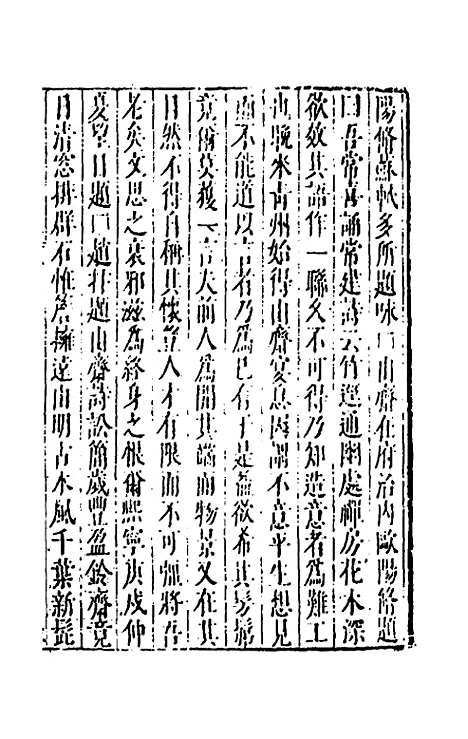 陽脩蘇軾多所題咏曰山齋在府治內歐陽脩題
曰吾常喜誦常建詩云竹逕通幽處禪房花木深
欲效其語作一聯久不可得乃知造意者為難工
也晚來青州始得山齋宴息因謂不意平生想見
而不能道以言者乃為已有于是益欲希其髣髴
竟爾莫穫一言夫前人為開其端而物景又在其
目然不得自稱其懷豈人才有限而不可彊將吾
老矣文思之衰邪茲為終身之恨爾熙寧庚戌仲
夏望日題曰趙抃題山齋詩訟簡歲豐盈鈴齋竟
日清窓排群石惟簷擁遠山明古木風千葉新髭